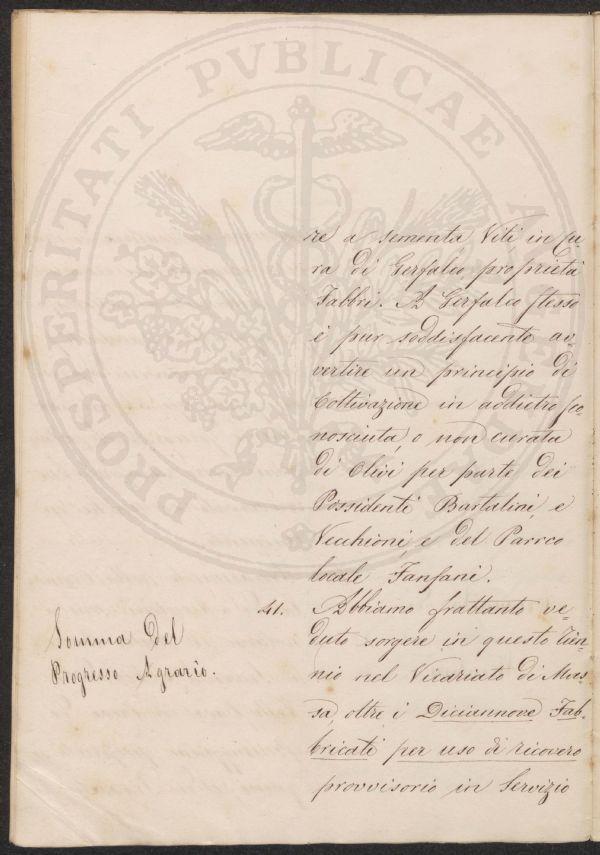 re a sementa, Viti in Cu-
ra di Gerfalco proprietà
Fabbri. A Gerfalco stesso
è pur soddisfacente av-
vertire un principio di
Coltivazione in addietro sco-
nosciuta, o non curata
di Olivi per parte dei
Possidenti Bartalini, e
Vecchioni, e del Parroco
locale Fanfani.
41. Abbiamo frattanto ve-
duto sorgere in questo
nio nel Vicariato di Mas-
sa, oltre i Diciannove Fab-
bricati per uso di ricovero
provvisorio in Servizio
Somma del
Progresso Agrario.
PROSPERITATI PVBLICAE